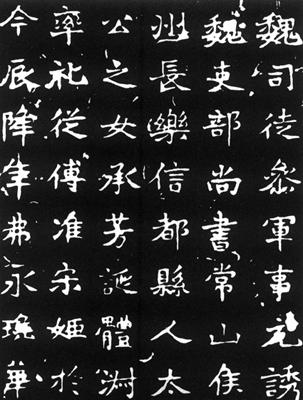 魏司徒參軍事元誘
魏吏部尚書常山侯
州長樂信都縣人太
公之女承芳誕體淵
率礼從傅准宋姬於
今辰降年弗永瓊華